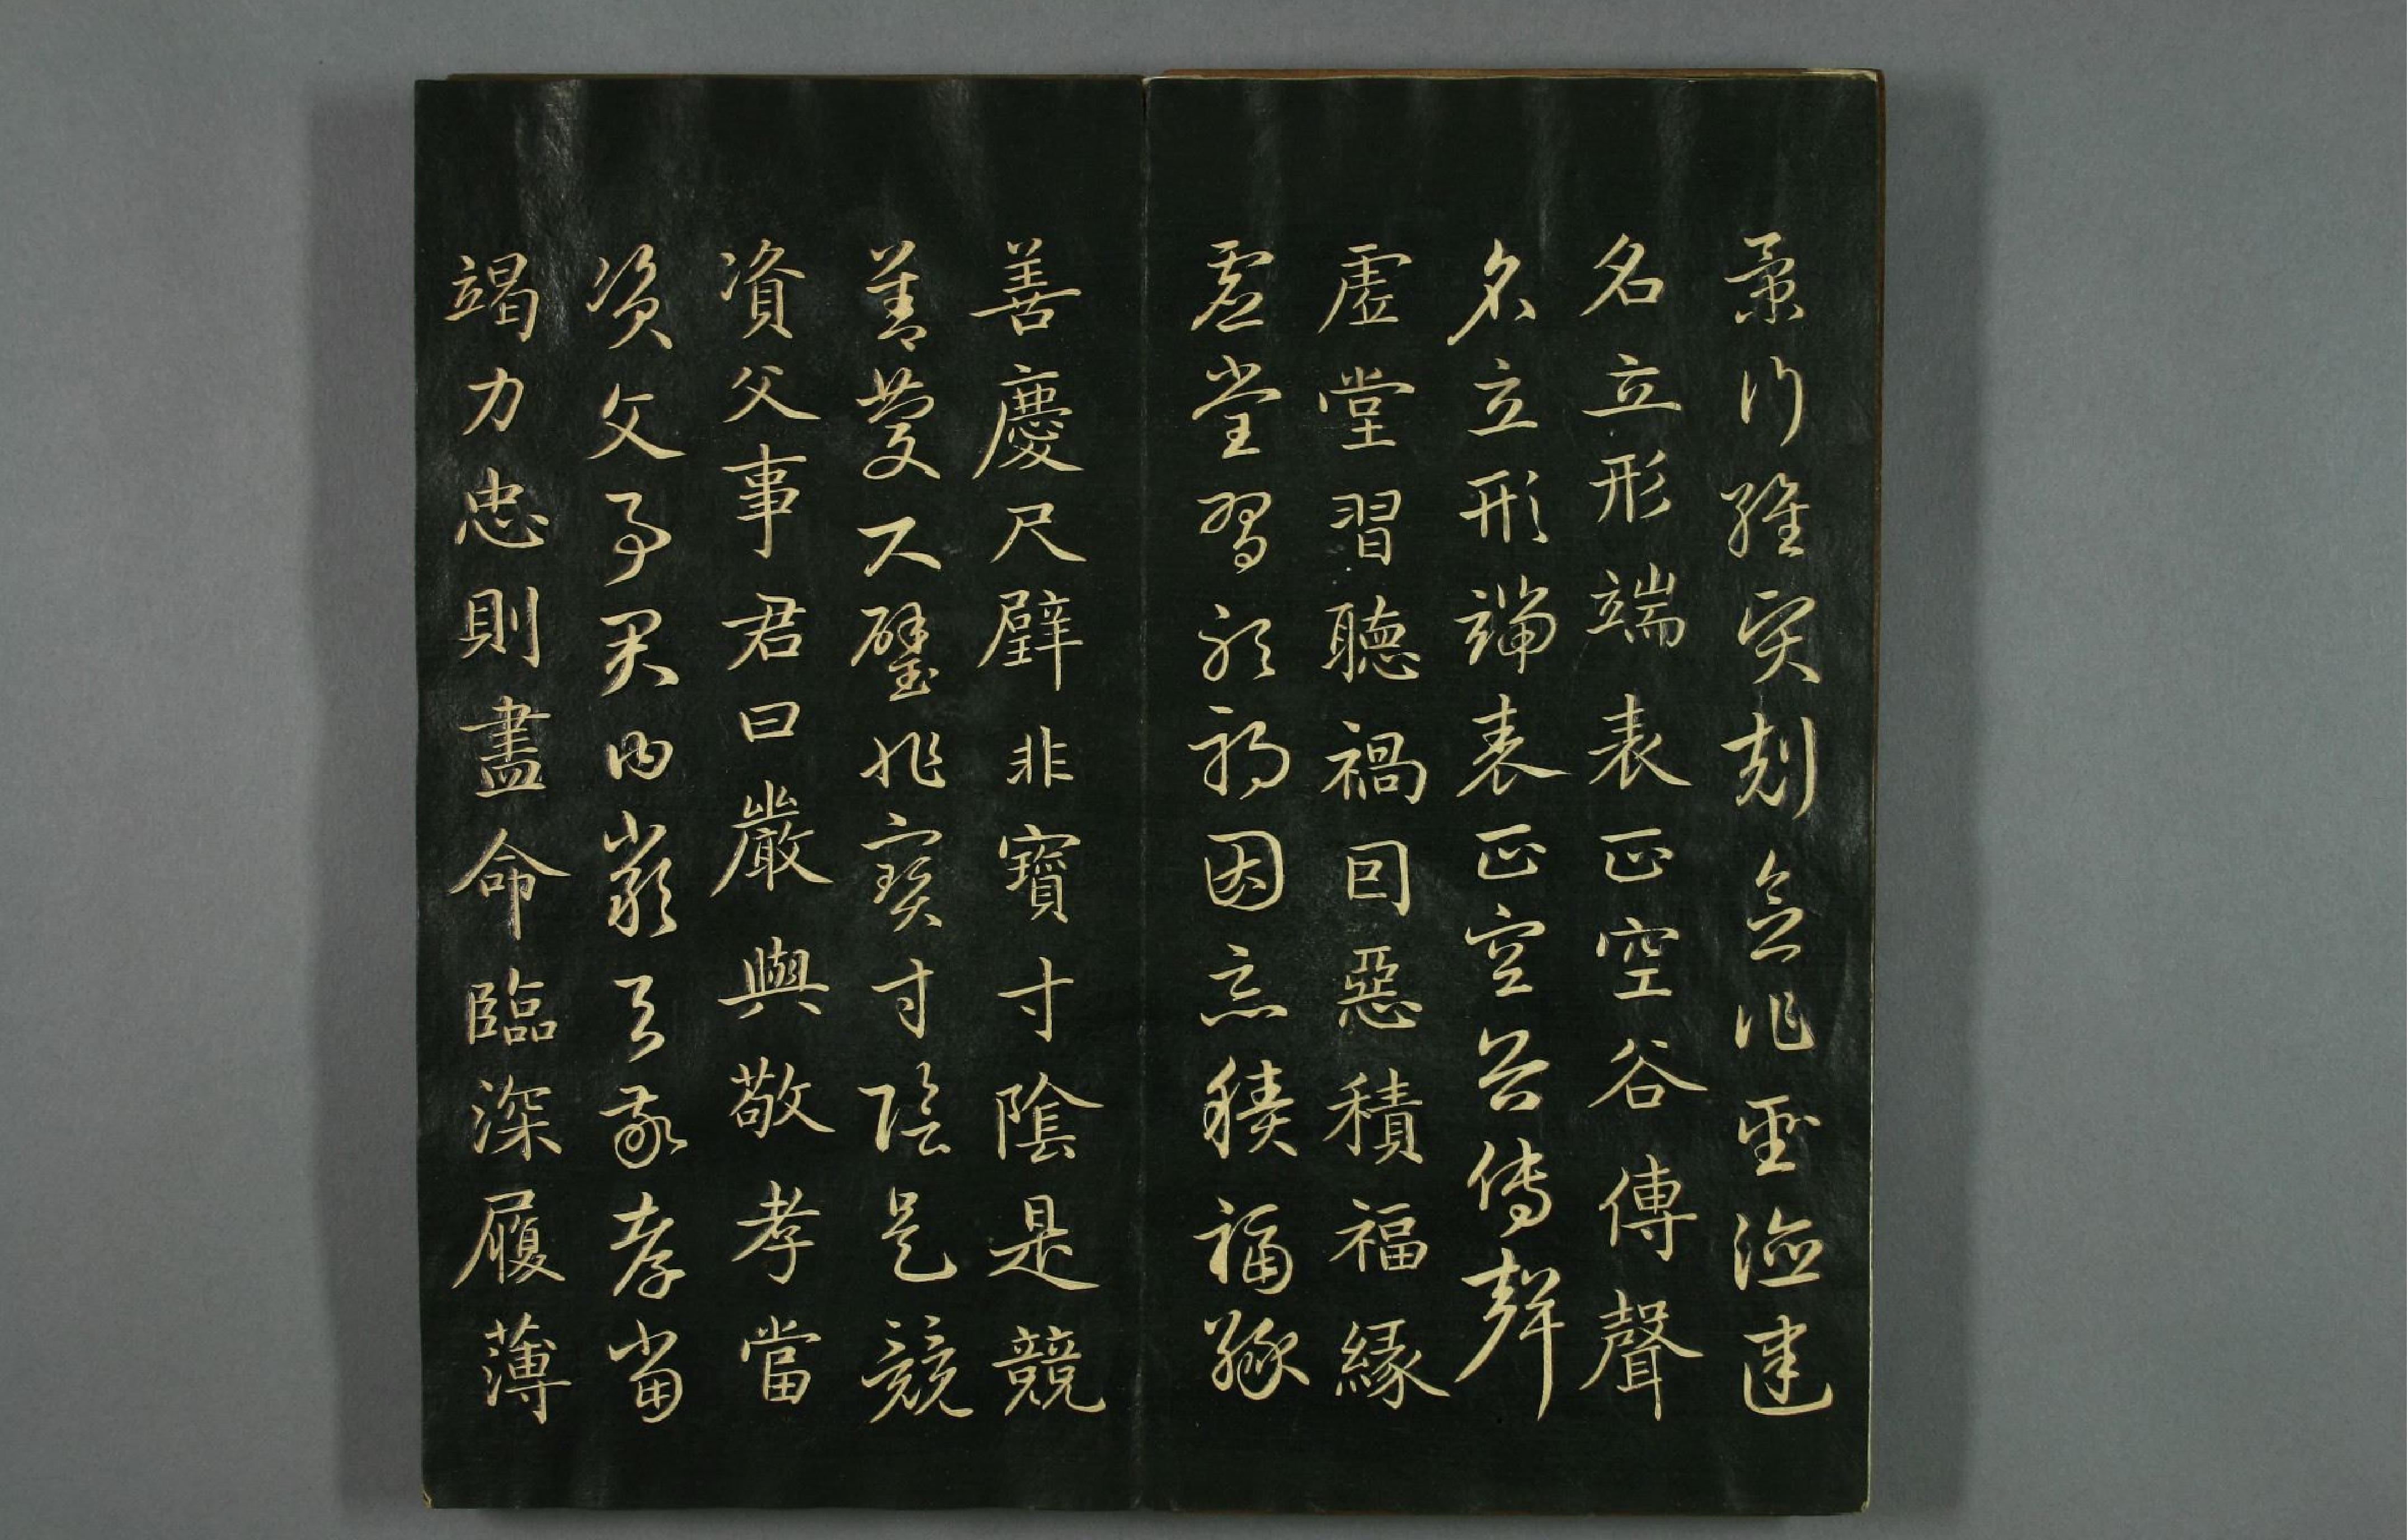 景行維賢剋念作聖德建
名立形端表正空谷傳聲
名立形端表正空谷傳聲
虛堂習聽禍囙惡積福緣
虛堂習聽禍因惡積福緣
善慶尺璧非寶寸陰是競
善慶尺璧非寶寸陰是競
資父事君曰嚴與敬孝當
資父事君曰嚴與敬孝當
竭力忠則盡命臨深履薄